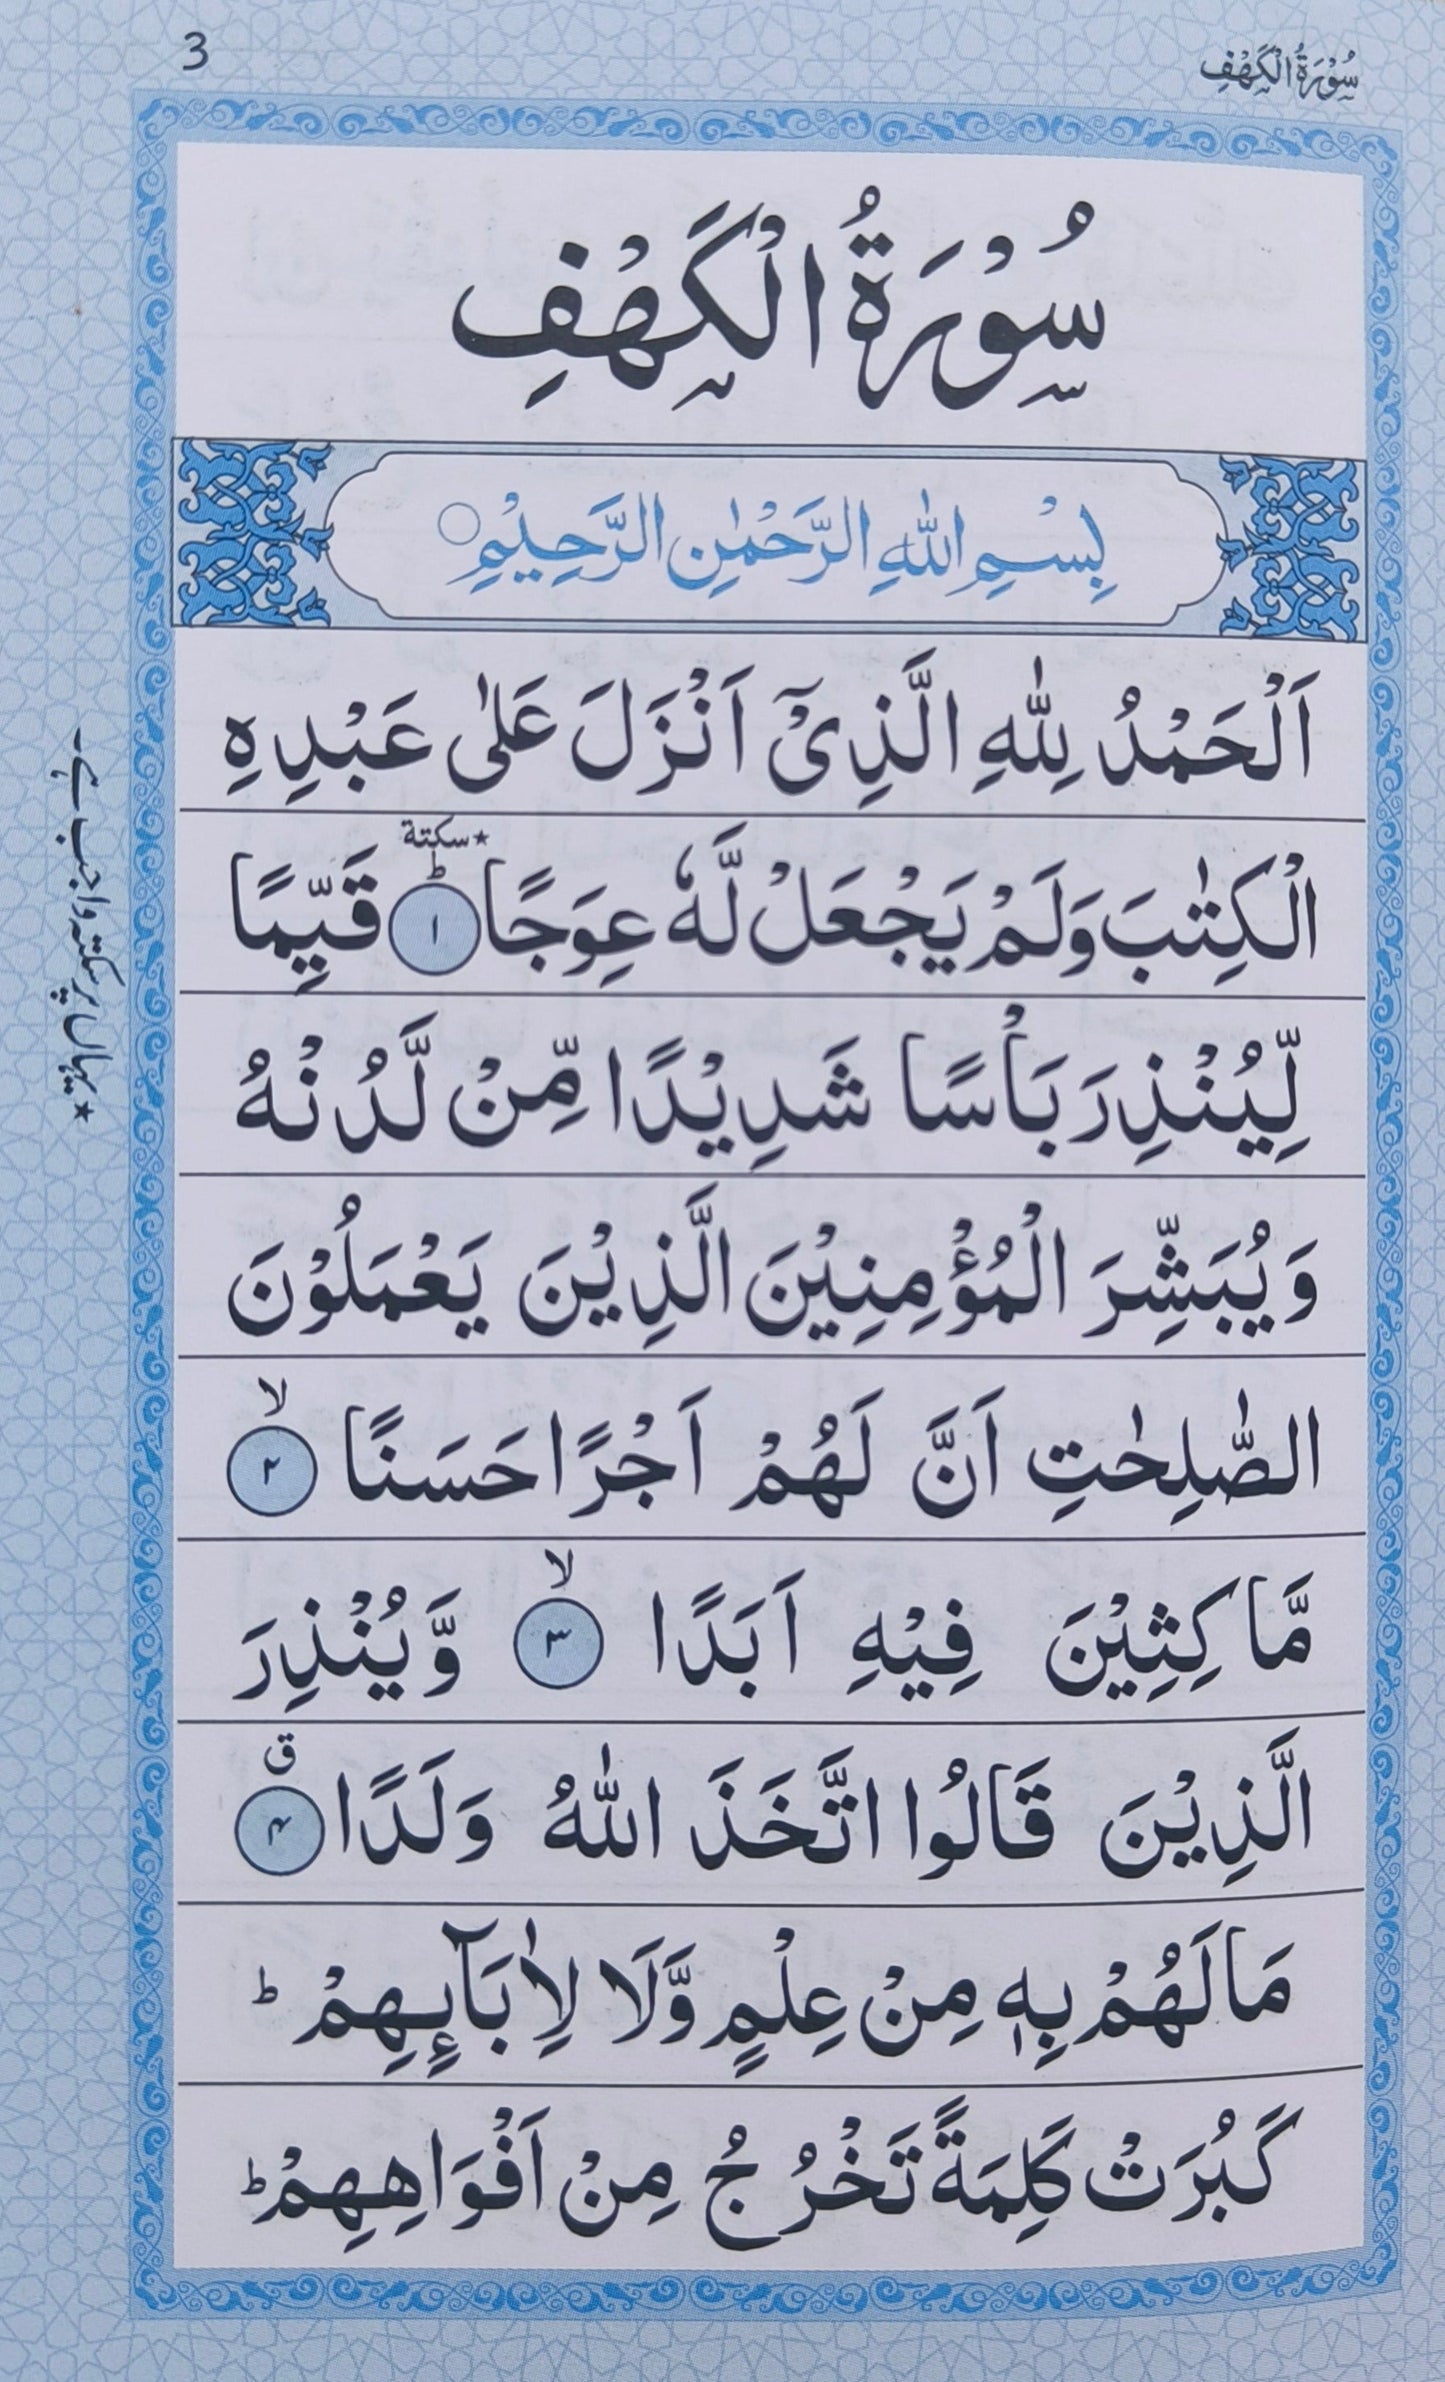 3
سُوْرَةُ الْكَهْفِ
سُوْرَةُ الْكَهْفِ
بِسْمِ اللّٰهِ الرَّحْمٰنِ الرَّحِيْمِ
اَلْحَمْدُ لِلّٰهِ الَّذِیْۤ اَنْزَلَ عَلٰی عَبْدِهِ
الْكِتٰبَ وَلَمْ یَجْعَلْ لَّهٗ عِوَجًا ؕ ★سكتة ۱ قَیِّمًا
لِّیُنْذِرَ بَاْسًا شَدِیْدًا مِّنْ لَّدُنْهُ
وَیُبَشِّرَ الْمُؤْمِنِیْنَ الَّذِیْنَ یَعْمَلُوْنَ
الصّٰلِحٰتِ اَنَّ لَهُمْ اَجْرًا حَسَنًا ۙ ۲
مَّاكِثِیْنَ فِیْهِ اَبَدًا ۙ ۳ وَّیُنْذِرَ
الَّذِیْنَ قَالُوا اتَّخَذَ اللّٰهُ وَلَدًا ق ۴
مَا لَهُمْ بِهٖ مِنْ عِلْمٍ وَّلَا لِاٰبَآىِٕهِمْ ؕ
كَبُرَتْ كَلِمَةً تَخْرُجُ مِنْ اَفْوَاهِهِمْ ؕ
★یہاں پر سکتہ واجب ہے۔